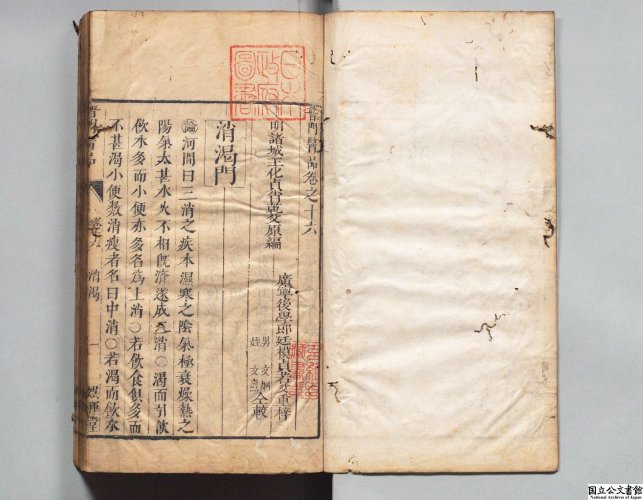 普門醫品卷之十六
明諸城王化貞肖乾父原編
廣寧後學郎廷模貞若父重梓
男文
姪文
仝較
消渴門
論河間曰三消之疾本濕寒之陰氣極衰燥熱之
陽氣太甚水火不相既濟遂成三消〇渴而引飲
飲水多而小便亦多名爲上消〇若飲食俱多而
不甚渴小便數消瘦者名曰中消〇若渴而飲水
普門醫品
卷之十六
消渴
一
日本政府圖書
国立公文書館
National Archives of Japan